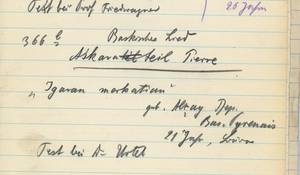 Text bei Prof. Friedwagner
25 Jahre
366 e Baskisches Lied
Askaratteil Pierre
„Igaran markatian"
geb. Alçay Dep.
Bas. Pyrenais
28 Jahr,
Text bei Dr Urtel